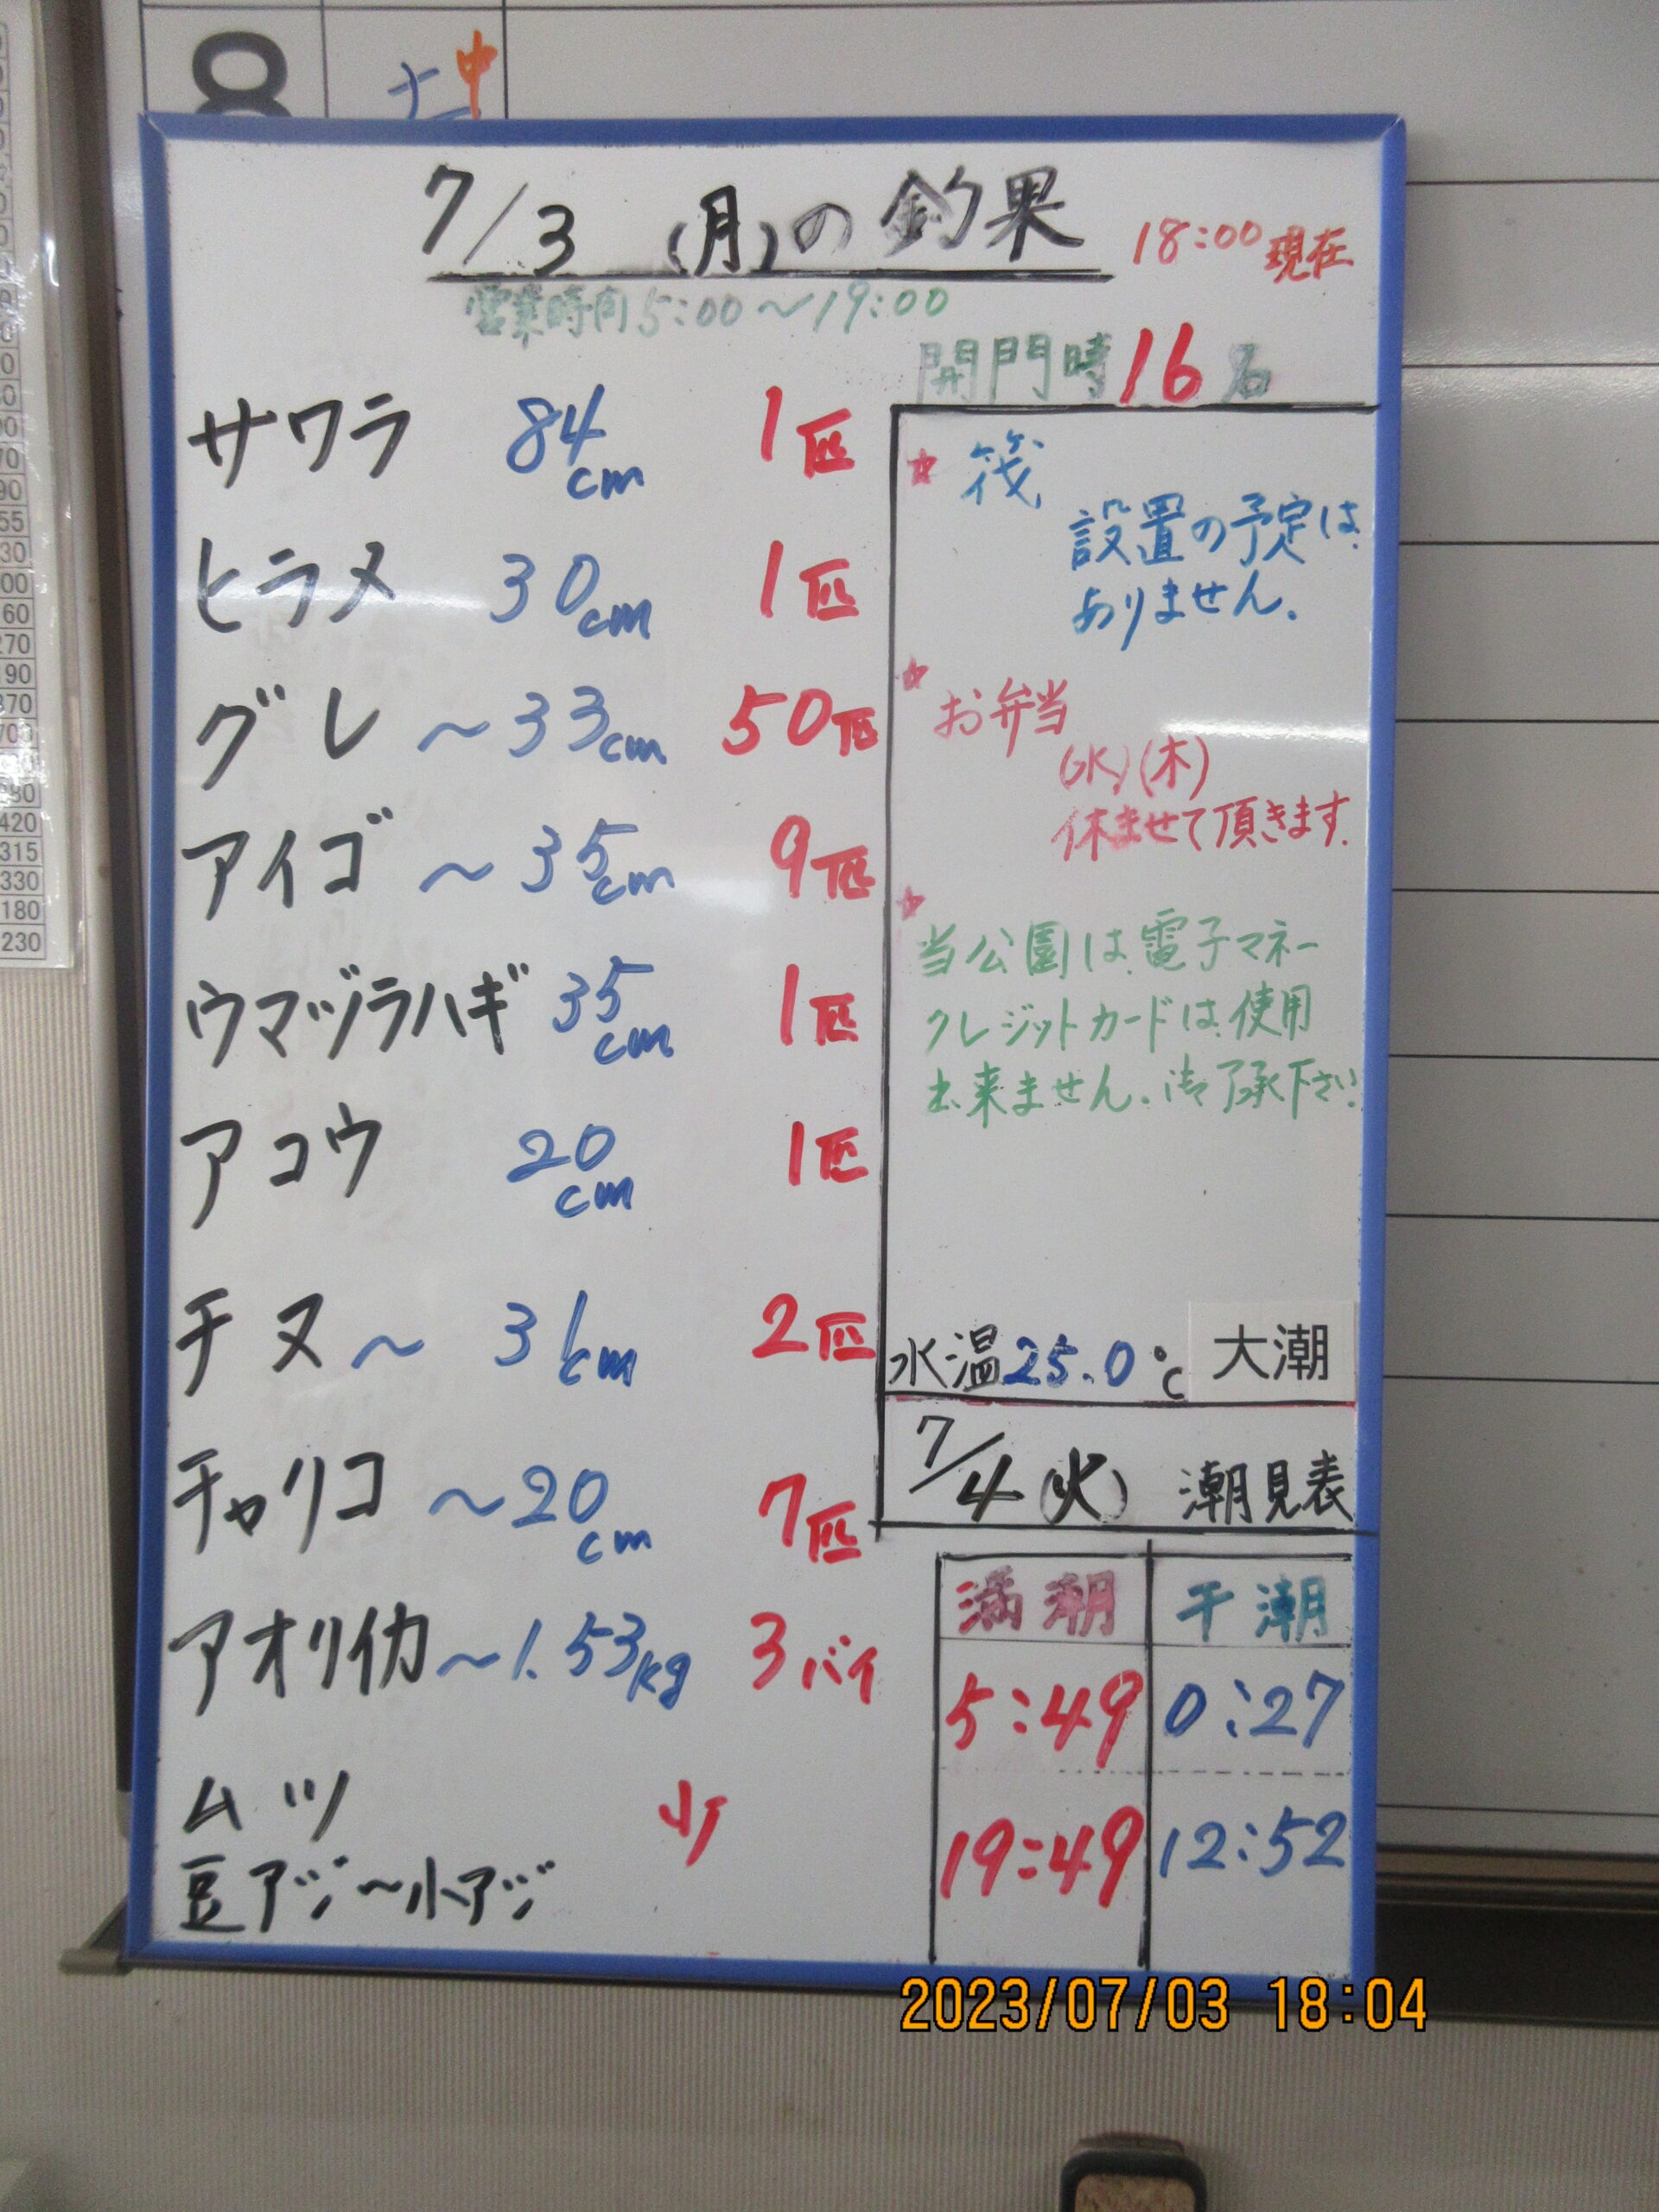 8 土 中
7/3 (月)の釣果 18:00現在
営業時間5:00〜19:00
開門時16名
サワラ 84cm 1匹
ヒラメ 30cm 1匹
グレ 〜33cm 50匹
アイゴ 〜35cm 9匹
ウマヅラハギ 35cm 1匹
アコウ 20cm 1匹
チヌ 〜31cm 2匹
チャリコ 〜20cm 7匹
アオリイカ〜1.53kg 3バイ
ムツ 少
豆アジ〜小アジ
☆筏
設置の予定は
ありません.
☆お弁当
(水)(木)
休ませて頂きます.
☆
当公園は電子マネー
クレジットカードは使用
出来ません.御了承下さい.
水温25.0℃ 大潮
7/4(火) 潮見表
満潮 干潮
5:49 0:27
19:49 12:52
2023/07/03 18:04